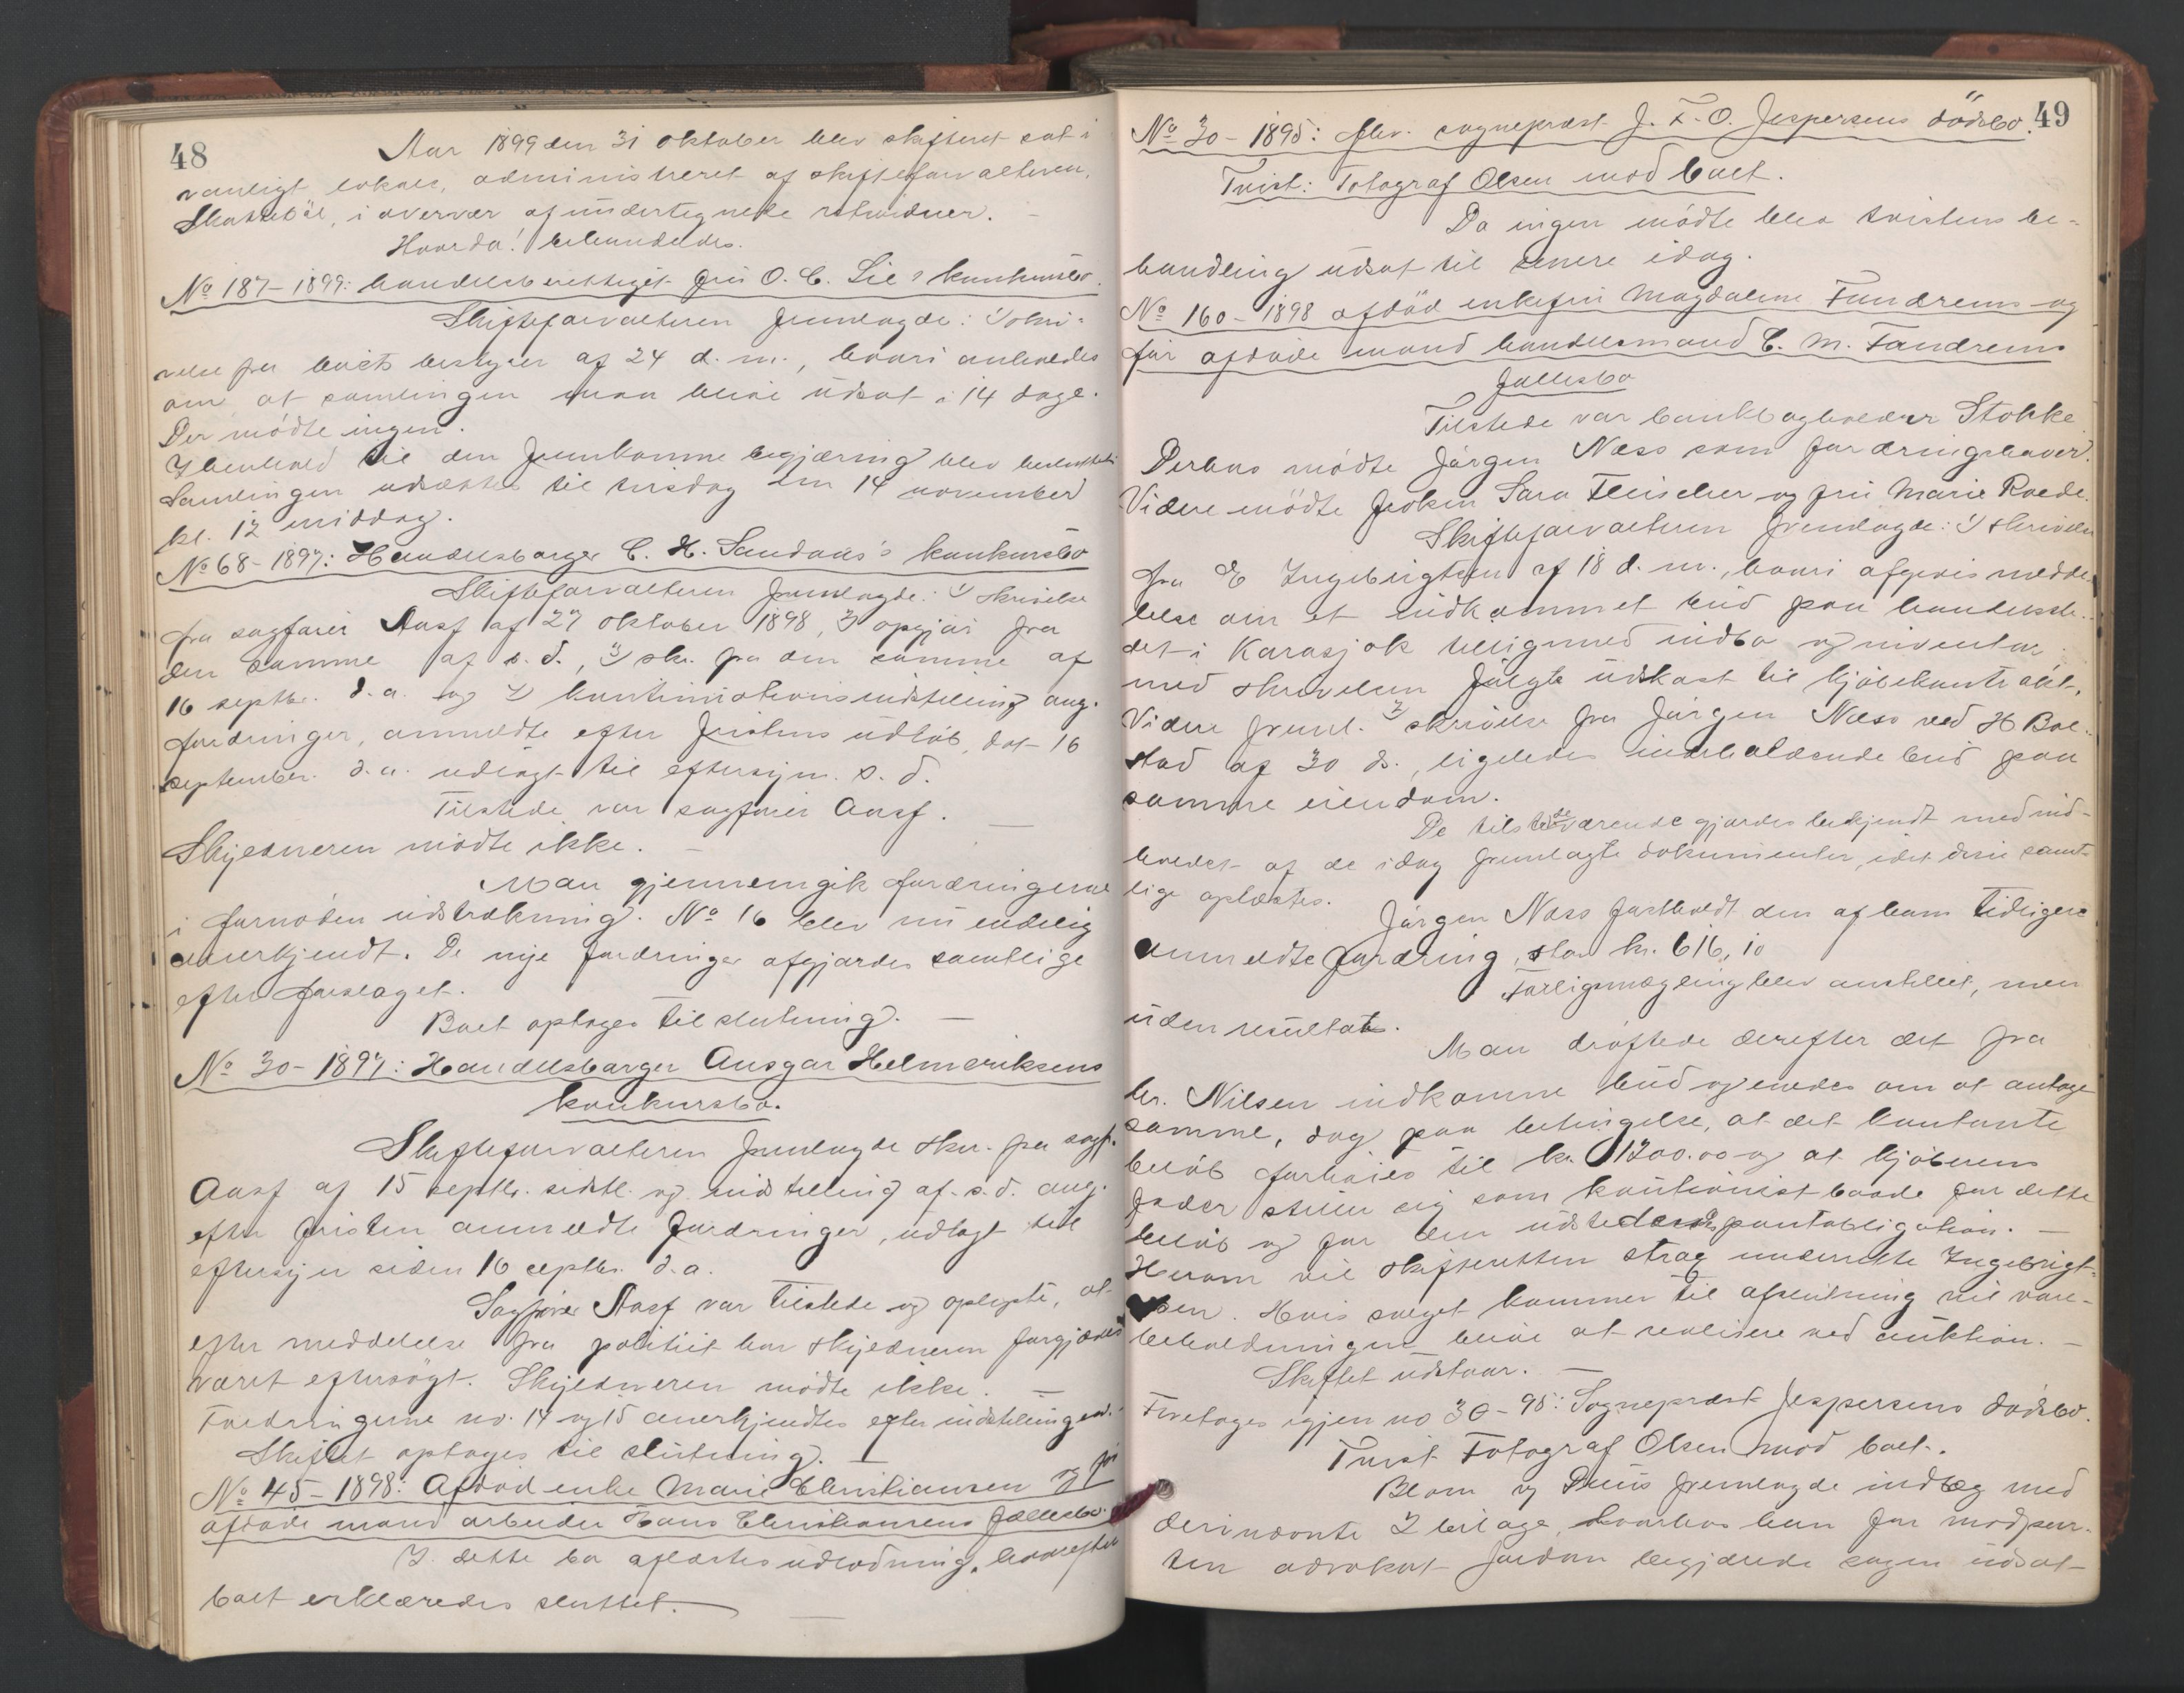 48
Aar 1899 den 31 oktober blev skifteret sat i
vanligt lokale, administreret af skifteforvalteren,
Skattebøl, i overvær af undertegnede retsvidner. –
Hvorda! behandledes.
No 187–1899: handelsberettiget fru O. C. Lie's konkursbo.
Skifteforvalteren fremlagde: 1) skri-
velse fra boets bestyrer af 24 d. m., hvori anholdes
om, at samlingen maa blive udsat i 14 dage.
Der mödte ingen.
I henhold til den fremkomne begjæring blev besluttet
Samlingen udsættes til tirsdag den 14 november
kl. 12 middag.
No 68–1897: Handelsborger C. H. Sandaas's konkursbo
Skifteforvalteren fremlagde: 1) skrivelse
fra sagfører Aasf af 27 oktober 1898, 2) opgjør fra
den samme af s. d., 3) skr. fra den samme af
16 septbr. d. a. og 4) kontinuationsindstilling ang.
fordringer, anmeldte efter fristens udløb, dat 16
september d. a. udlagt til eftersyn s. d.
Tilstede var sagfører Aasf. –
Skyldneren mödte ikke. –
Man gjennemgik fordringerne
i fornøden udstrækning. No 16 blev nu endelig
anerkjendt. De nye fordringer afgjordes samtlige
efter forslaget.
Boet optoges til slutning. –
No 30–1897: Handelsborger Ansgar Helmeriksens
konkursbo.
Skifteforvalteren fremlagde skr. fra sagf.
Aasf af 15 septbr. sidstl. og indstilling af s. d. ang.
efter fristen anmeldte fordringer, udlagt til
eftersyn siden 16 septbr. d. a.
Sagfører Aasf var tilstede og oplyste, at
efter meddelelse fra politiet har skyldneren forgjæves
været eftersögt. Skyldneren mödte ikke. –
Fordringerne no. 14 og 15 anerkjendtes efter indstillingen. –
Skiftet optoges til slutning. –
No 45–1898: Afdød enke Marie Christiansen og før
afdøde mand arbeider Hans Christiansens fællesbo.
I dette bo aflæstes udlodning, hvorefter
boet erklæredes sluttet. –
49
No 30–1895: afdöde sogneprest J. F. O. Jespersens dödsbo.
Tvist: Fotograf Olsen mod boet.
Da ingen mödte blev tvistens be-
handling udsat til senere idag.
No 160–1898 afdöd enkefru Magdalene Fandrems og
før afdøde mand handelsmand C. M. Fandrems
fællesbo
Tilstede var bankbogholder Stokke
Derhos mödte Jørgen Næss som fordringshaver.
Videre mödte frøken Sara Fleischer og fru Marie Roede.
Skifteforvalteren fremlagde: 1) skrivelse
fra E Ingebrigtsen af 18 d. m., hvori afgives medde-
lelse om et indkommet bud paa handelsste-
det i Karasjok tilligemed indbo og inventar.
med skrivelsen fulgte udkast til kjøbekontrakt.
Videre freml. 2) skrivelse fra Jørgen Næss ved H Bol-
stad af 30 ds., ligeledes indeholdende bud paa
samme eiendom.
De tilstedeværende gjordes bekjendt med ind-
holdet af de idag fremlagte dokumenter, idet disse samt-
lige oplæstes.
Jørgen Næss fastholdt den af ham tidligere
anmeldte fordring, stor kr. 616,10
Forligsmægling blev anstillet, men
uden resultat.
Man drøftede derefter det fra
hr. Nilsen indkomne bud og enedes om at antage
samme, dog paa betingelse, at det kontante
beløb forhøies til kr. 1200.00 og at kjøberens
fader stiller sig som kautionist baade for dette
beløb og for den udstedendes pantobligation. –
Herom vil skifteretten strax underrette Ingebrigt-
sen. Hvis salget kommer til afslutning vil vare-
beholdningen blive at realisere ved auktion. –
Skiftet udstaar. –
Foretoges igjen no 30–95: Sogneprest Jespersens dödsbo.
Tvist Fotograf Olsen mod boet.
Blom og fremlagde indlæg med
deri nævnte 2 bilage, hvorhos han for modpar-
ten advokat Jordan begjærede sagen udsat